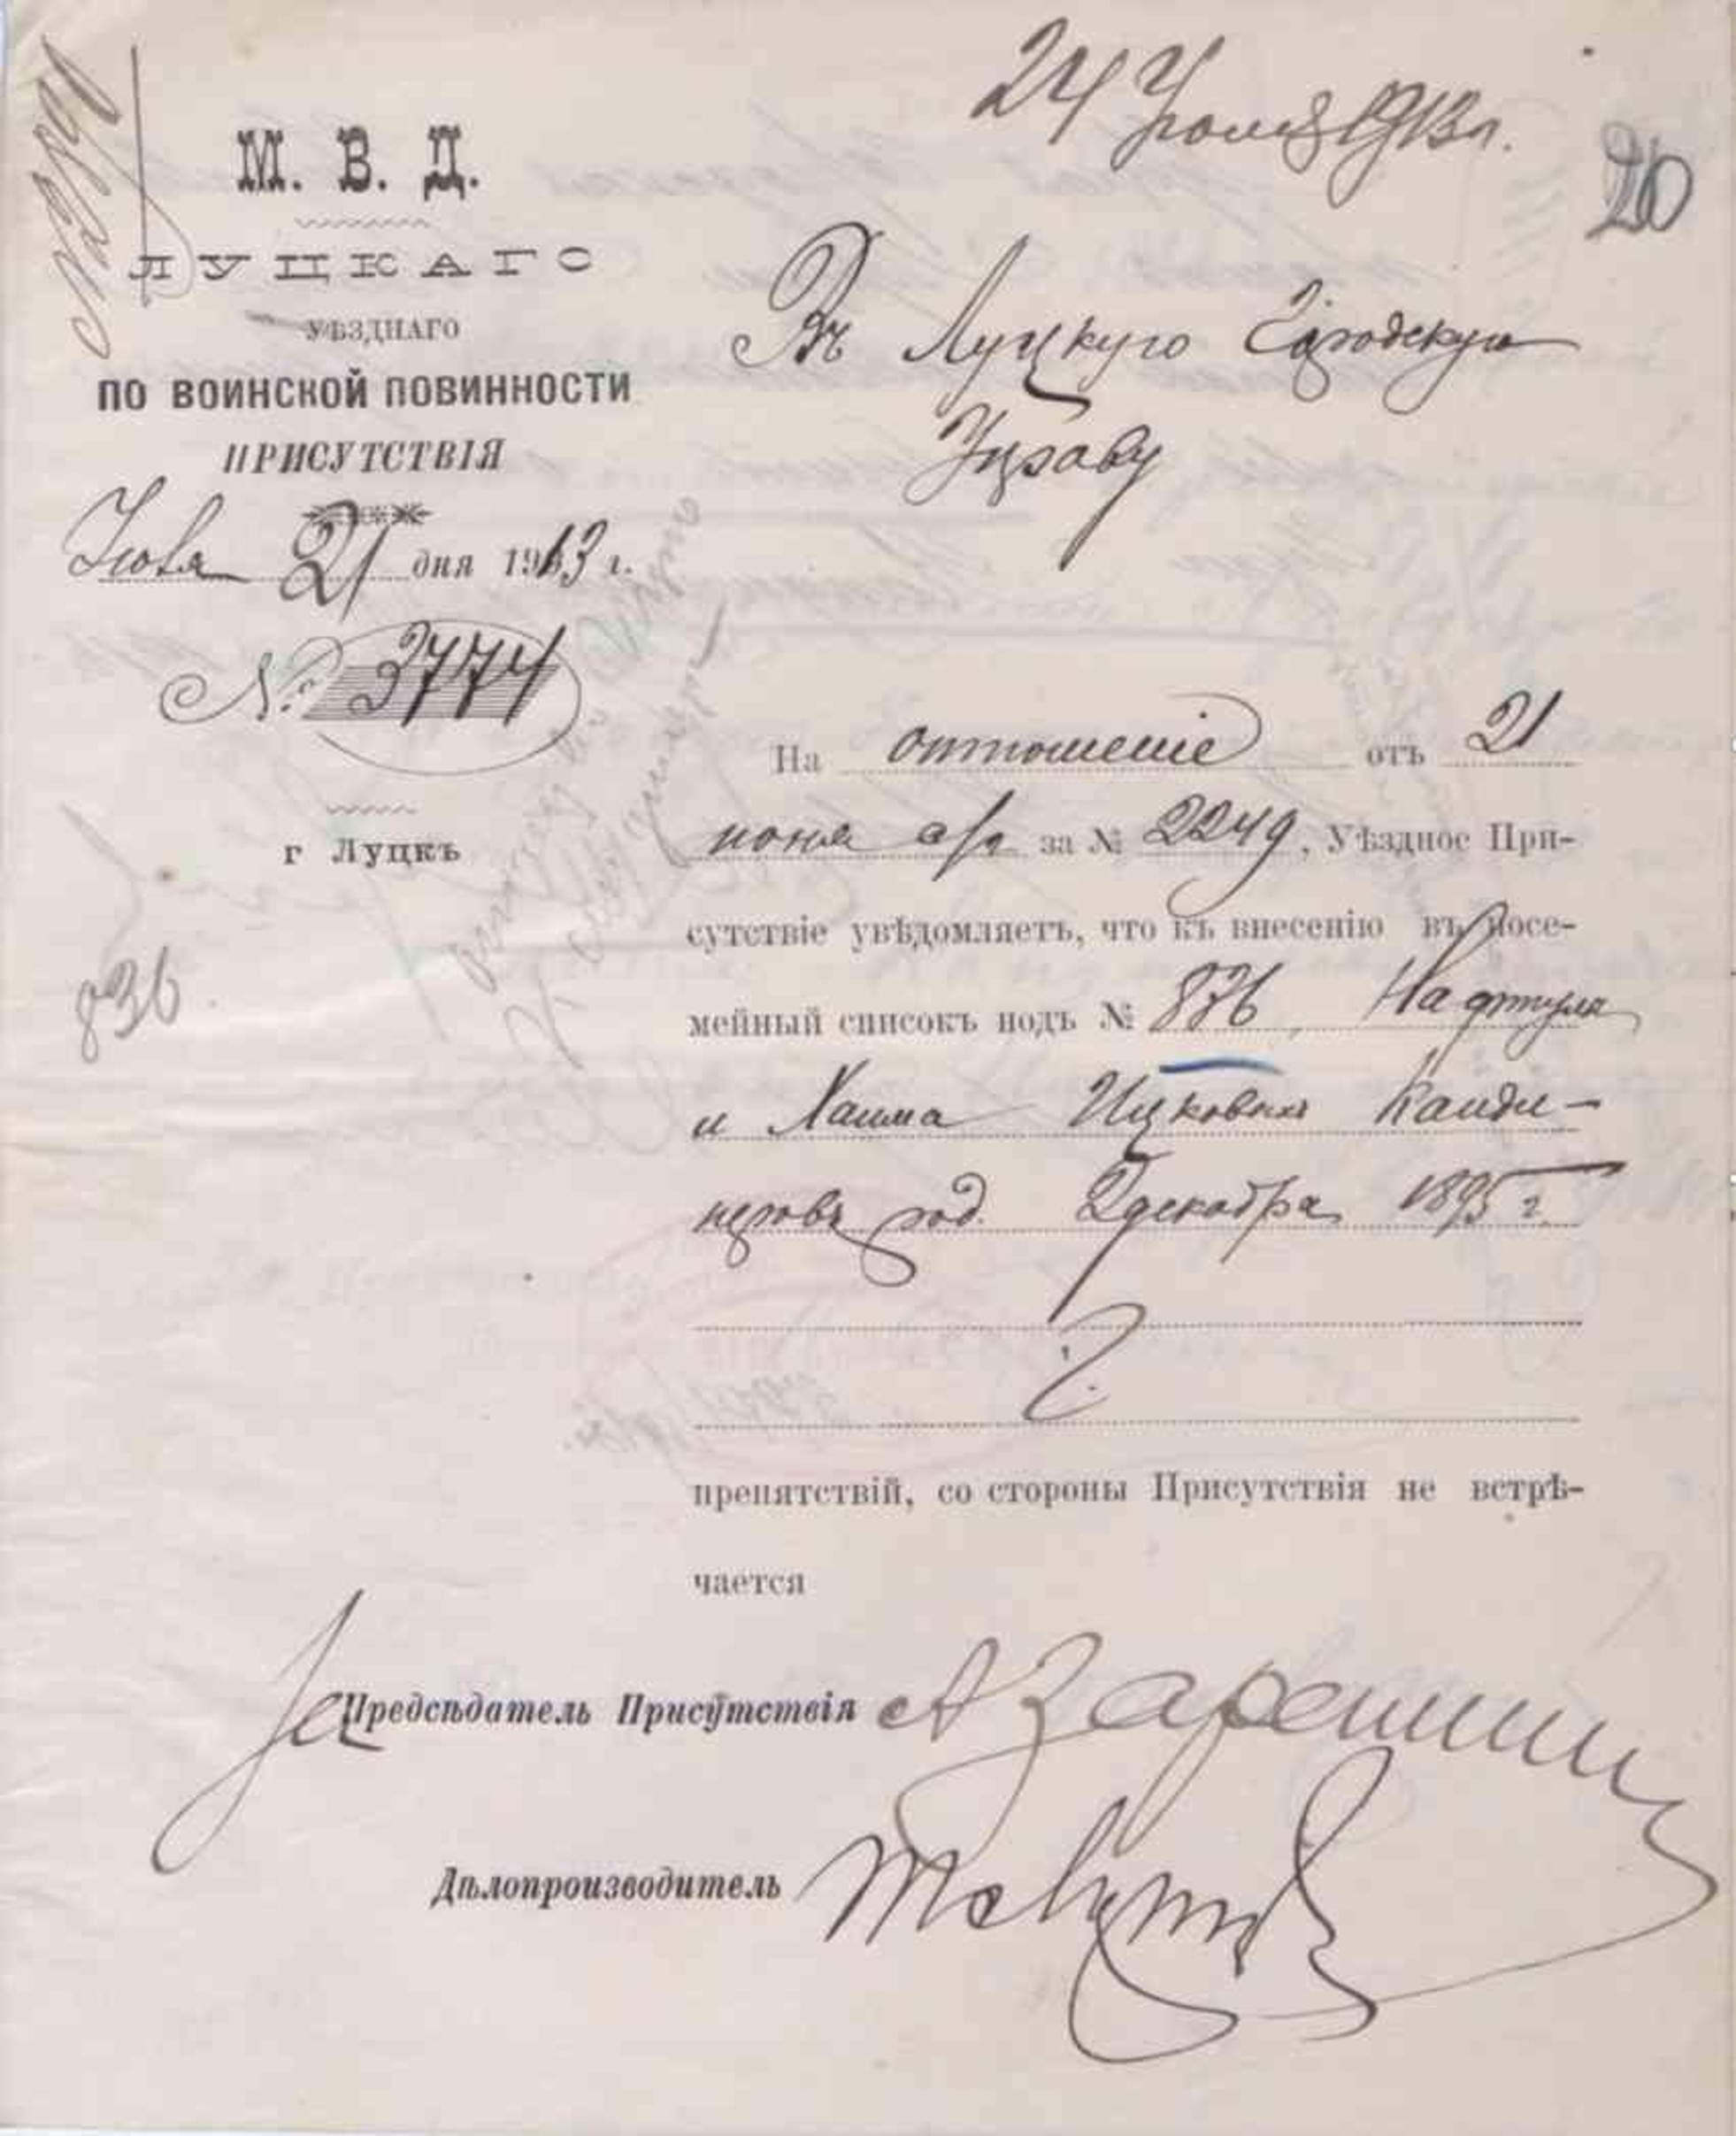 24 Июня 1913 г.
20
М. В. Д.
ЛУЦКАГО
УѢЗДНАГО
ПО ВОИНСКОЙ ПОВИННОСТИ
ПРИСУТСТВІЯ
Іюня 21 дня 1913 г.
№ 3774
г Луцкъ
836
Въ Луцкую Городскую
Управу
На отношеніе отъ 21
іюня с/г за № 2249, Уѣздное При-
сутствіе увѣдомляетъ, что къ внесенію въ посе-
мейный списокъ подъ № 836 Нафтула
и Хаима Ицковыхъ Канди-
неровъ род. 2 декабря 1895 г.
препятствій, со стороны Присутствія не встрѣ-
чается
За Предсѣдатель Присутствія
Дѣлопроизводитель